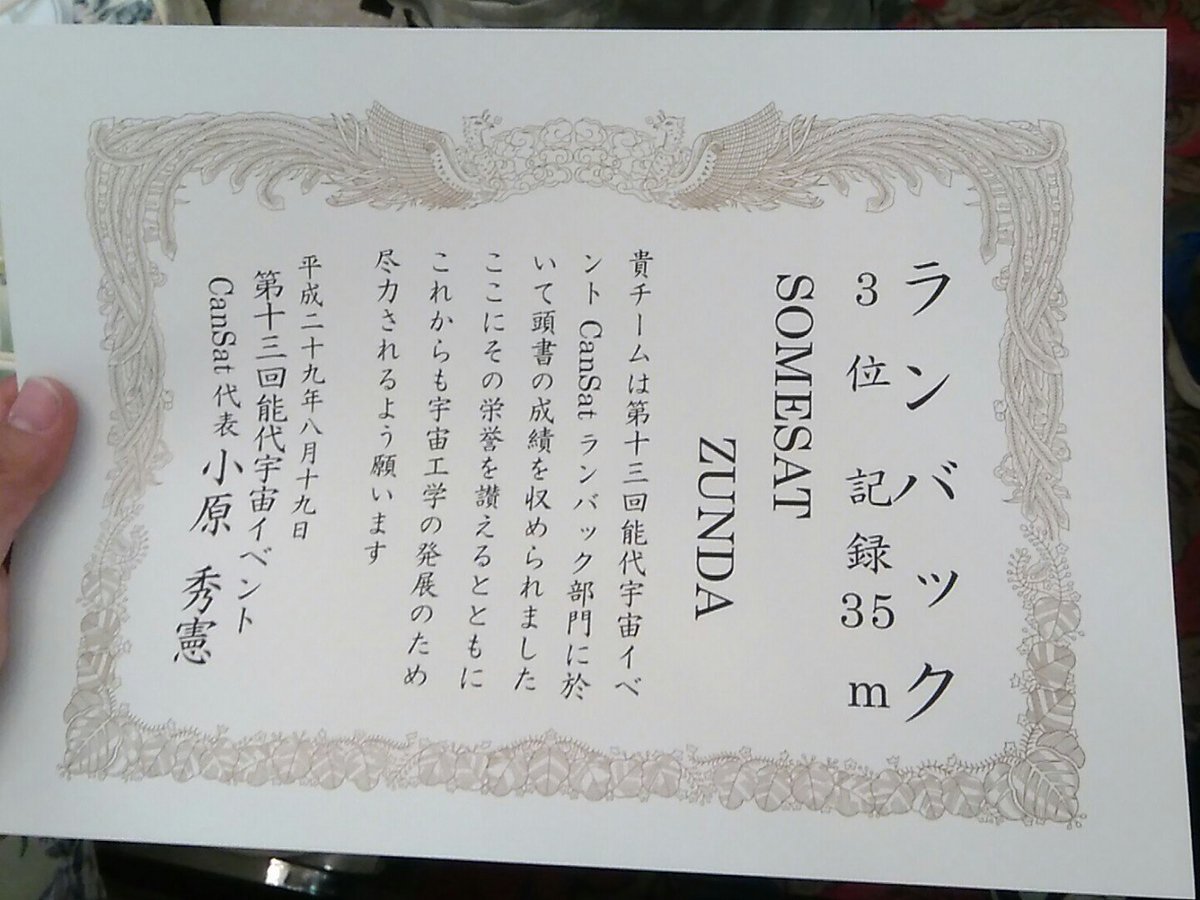 ランバック
3位 記録35m
SOMESAT
ZUNDA
貴チームは第十三回能代宇宙イベ
ント CanSat ランバック部門に於
いて頭書の成績を収められました
ここにその栄誉を讃えるとともに
これからも宇宙工学の発展のため
尽力されるよう願います
平成二十九年八月十九日
第十三回能代宇宙イベント
CanSat 代表 小原 秀憲